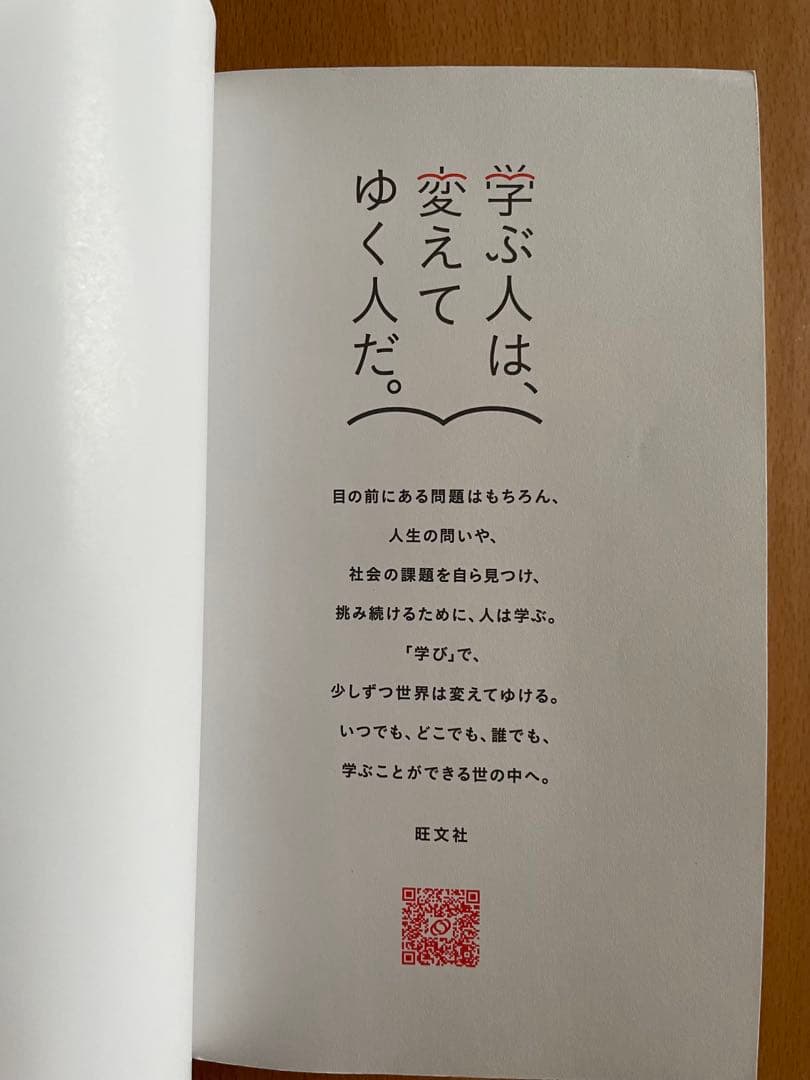 学ぶ人は、
変えて
ゆく人だ。
目の前にある問題はもちろん、
人生の問いや、
社会の課題を自ら見つけ、
挑み続けるために、人は学ぶ。
「学び」で、
少しずつ世界は変えてゆける。
いつでも、どこでも、誰でも、
学ぶことができる世の中へ。
旺文社